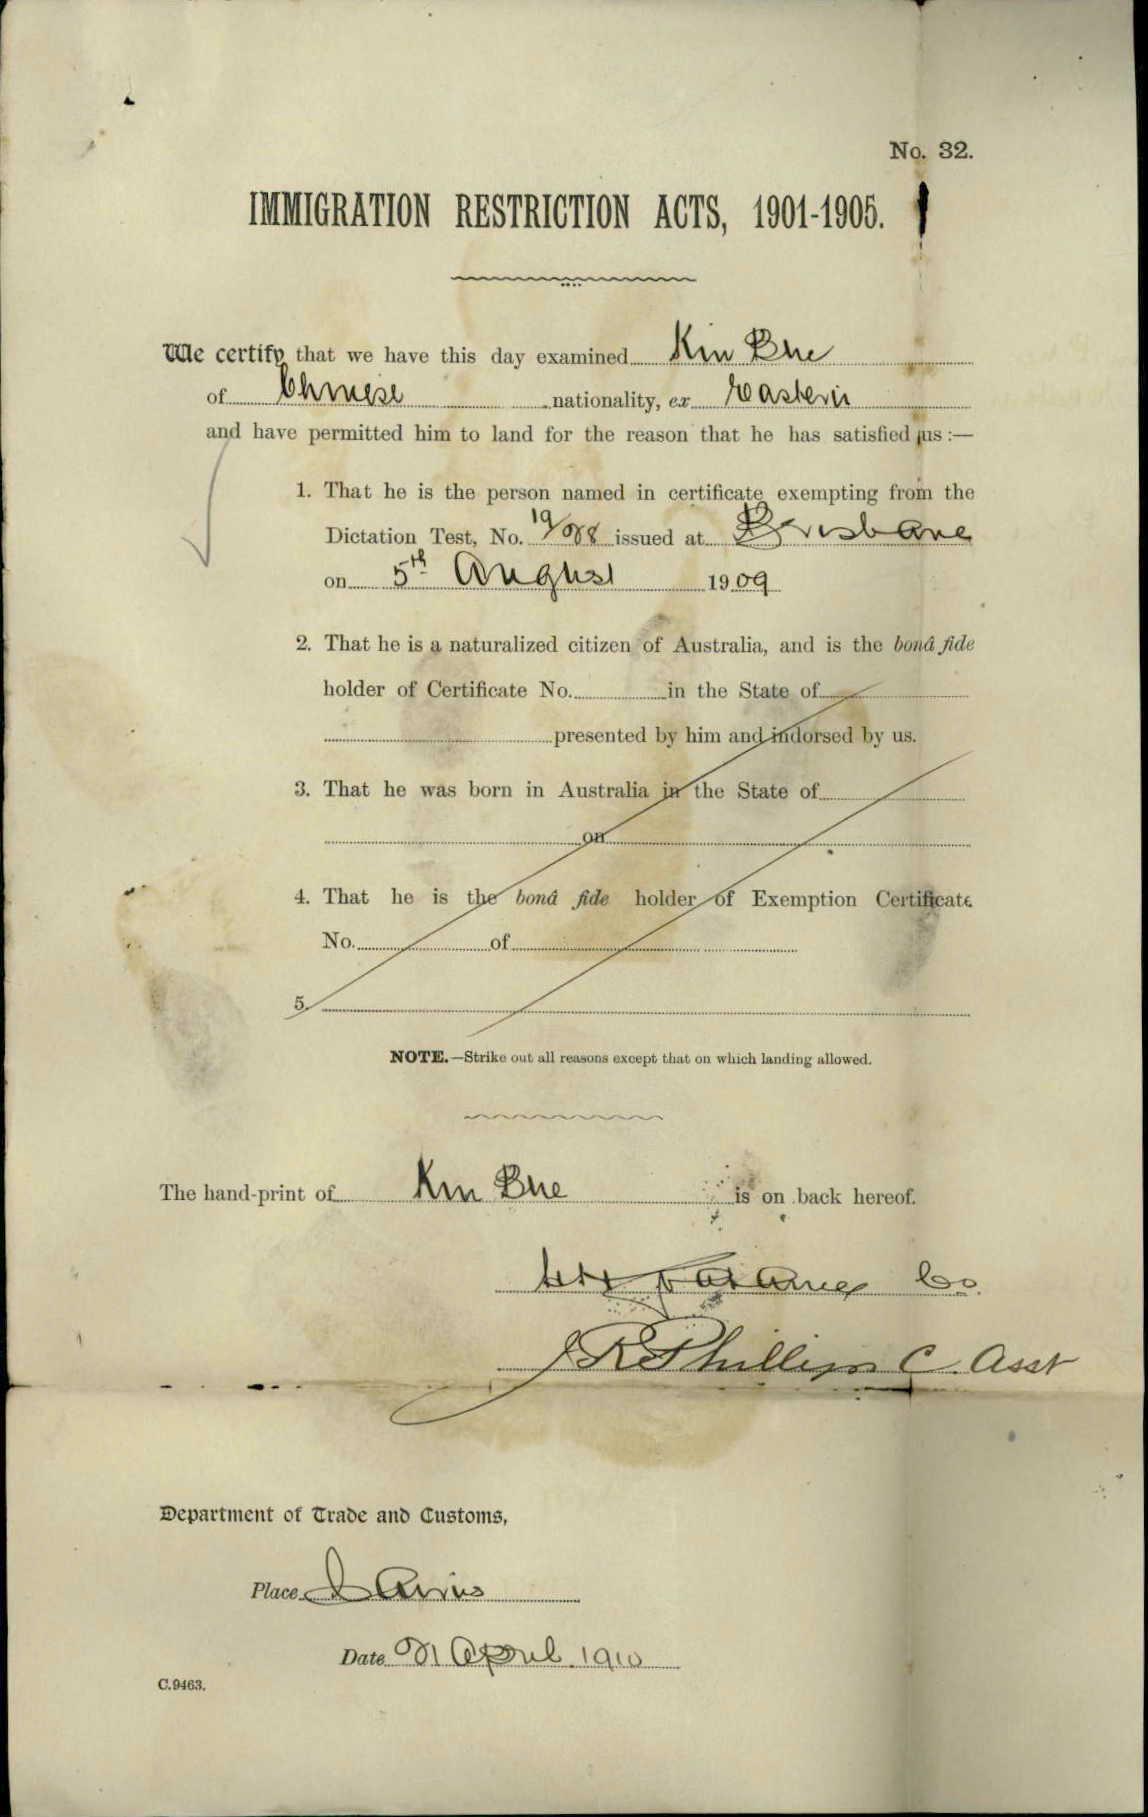 No. 32.
IMMIGRATION RESTRICTION ACTS, 1901-1905.
We certify that we have this day examined Kin Bue
of Chinese nationality, ex Eastern
and have permitted him to land for the reason that he has satisfied us :—
1. That he is the person named in certificate exempting from the
Dictation Test, No. issued at Brisbane
on 5th August 1909
2. That he is a naturalized citizen of Australia, and is the bonâ fide
holder of Certificate No. in the State of
presented by him and indorsed by us.
3. That he was born in Australia in the State of
on
4. That he is the bonâ fide holder of Exemption Certificate
No. of
5.
NOTE.—Strike out all reasons except that on which landing allowed.
The hand-print of Kin Bue is on back hereof.
Co.
J R Phillips C. Asst
Department of Trade and Customs,
Place Cairns
Date 21 April 1910
C.9463.